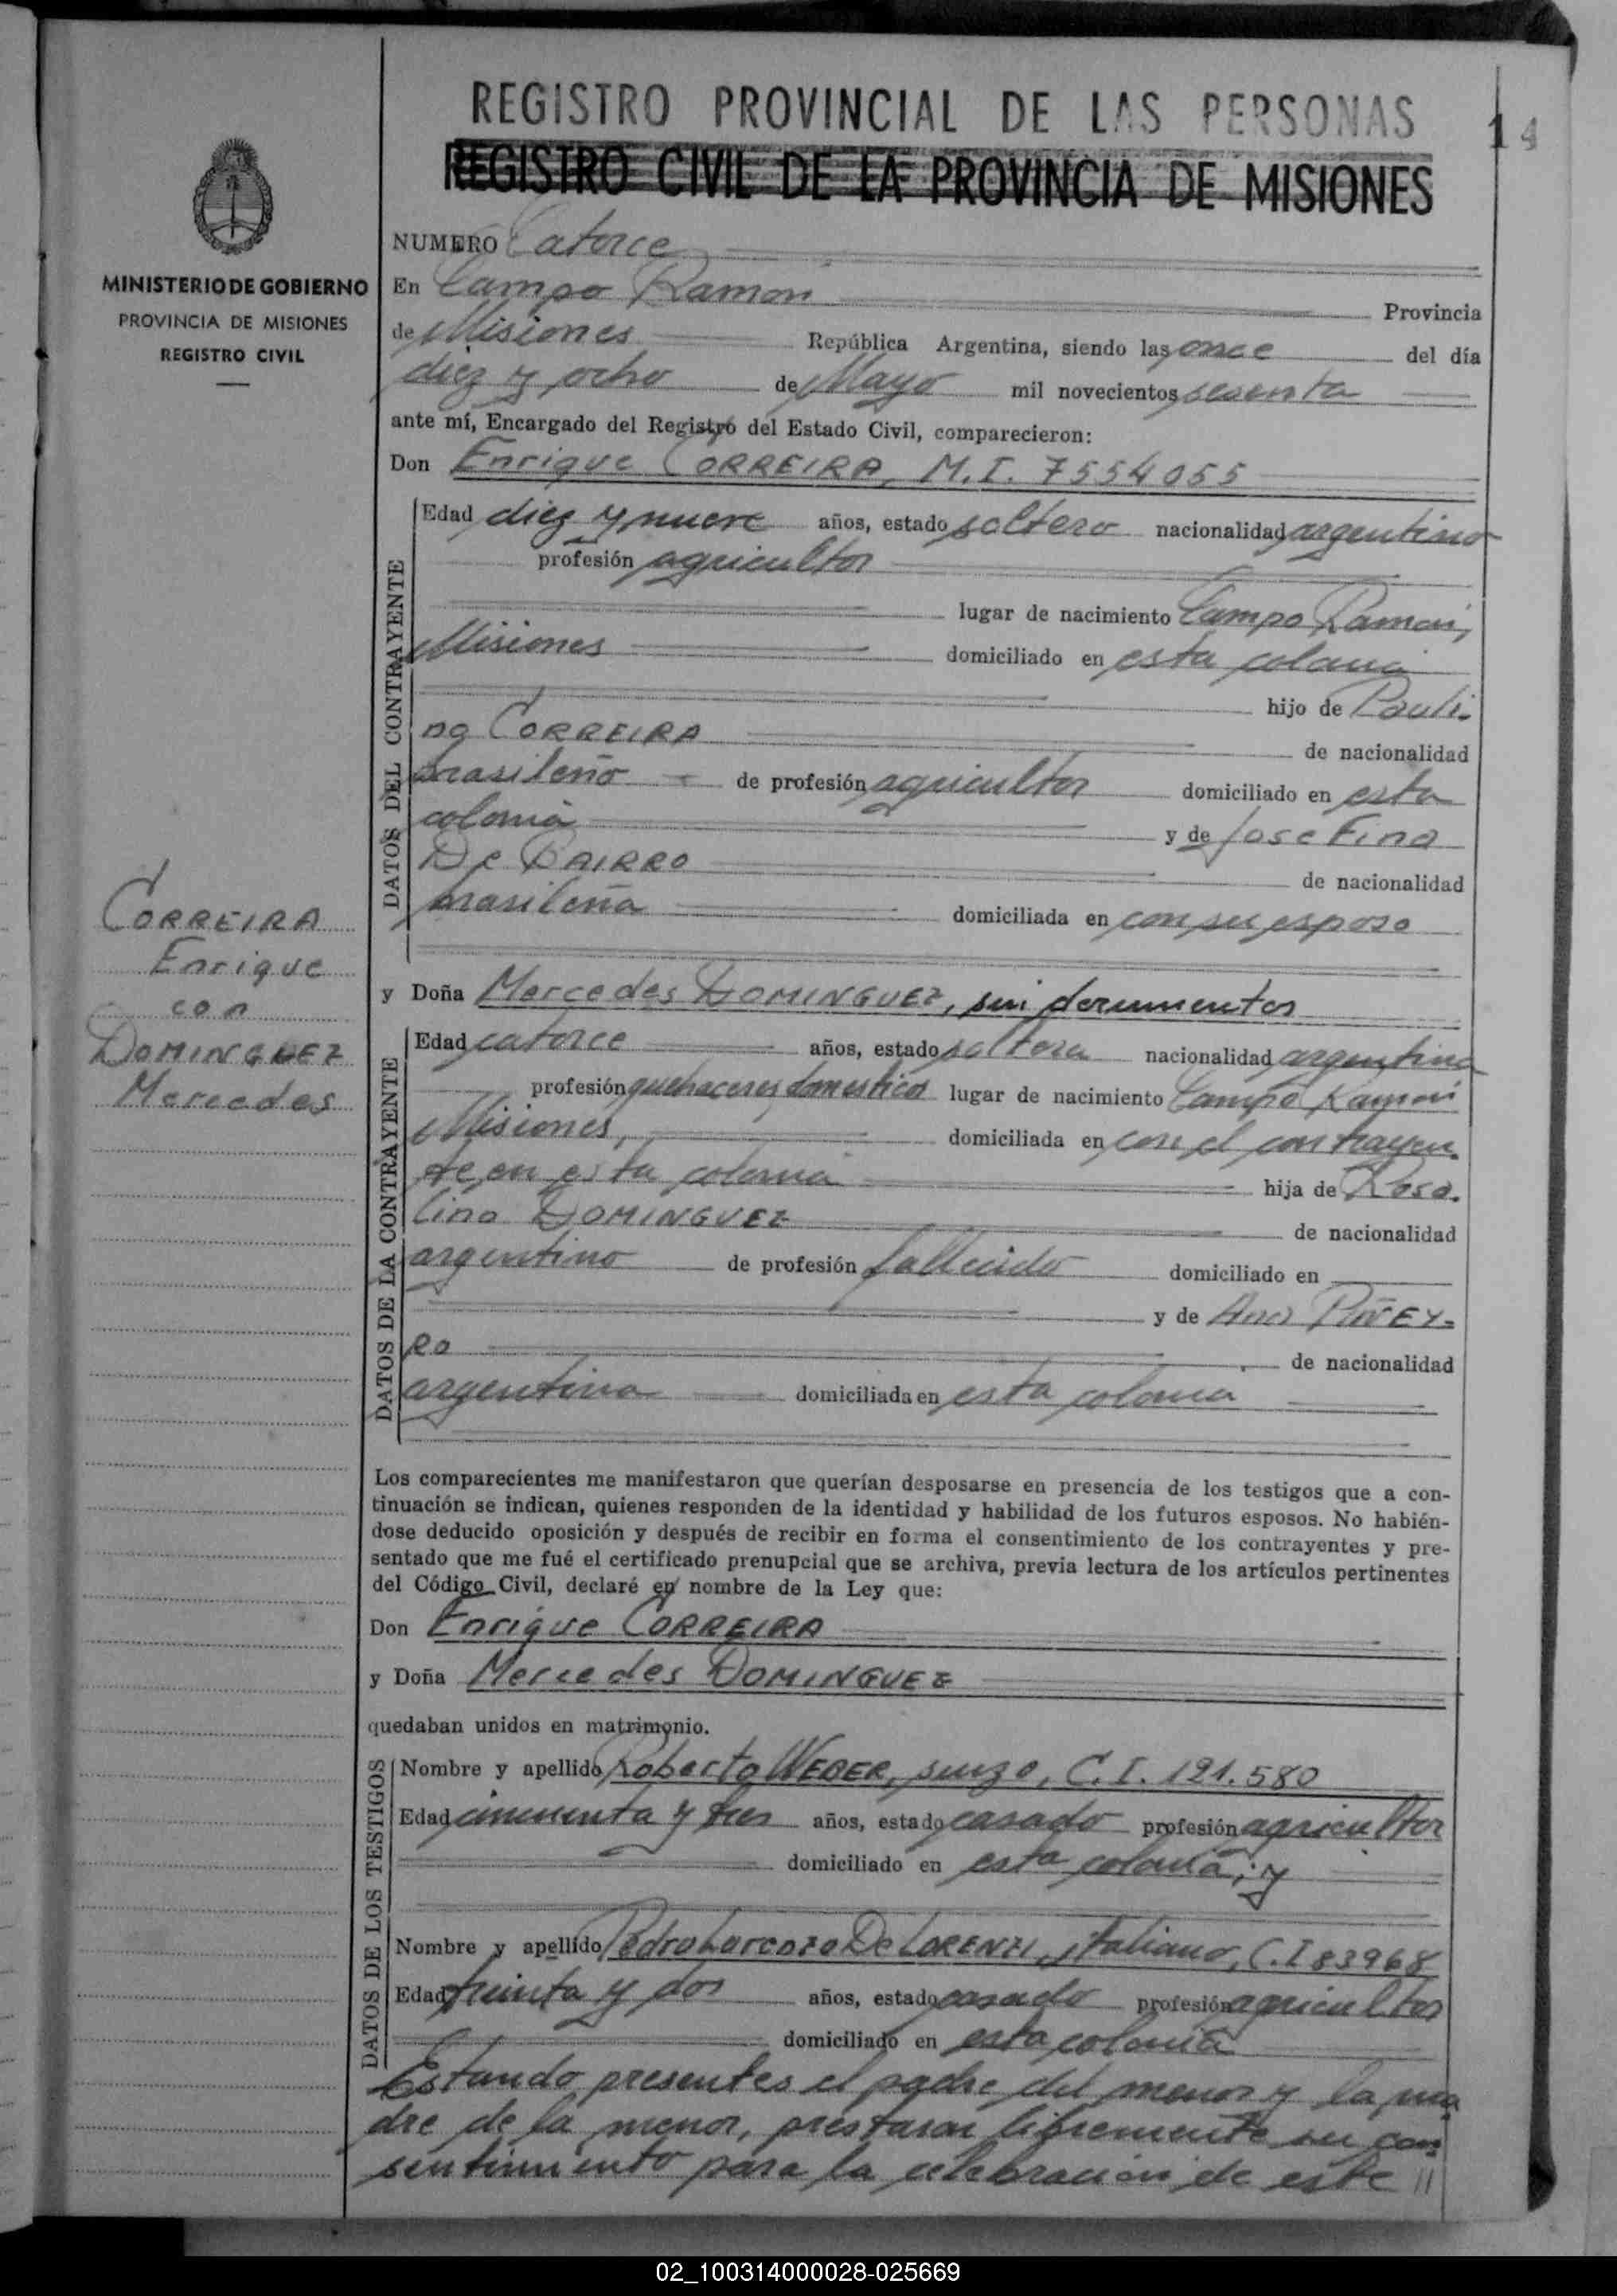 REGISTRO PROVINCIAL DE LAS PERSONAS
14
REGISTRO CIVIL DE LA PROVINCIA DE MISIONES
MINISTERIO DE GOBIERNO
PROVINCIA DE MISIONES
REGISTRO CIVIL
CORREIRA
Enrique
con
DOMINGUEZ
Mercedes
NUMERO Catorce
En Campo Ramón Provincia
de Misiones República Argentina, siendo las once del día
diez y ocho de Mayo mil novecientos sesenta
ante mí, Encargado del Registro del Estado Civil, comparecieron:
Don Enrique CORREIRA, M.I. 7554055
DATOS DEL CONTRAYENTE
Edad diez y nueve años, estado soltero nacionalidad argentino
profesión agricultor
lugar de nacimiento Campo Ramón,
Misiones domiciliado en esta colonia
hijo de Pauli-
no CORREIRA de nacionalidad
brasileño de profesión agricultor domiciliado en esta
colonia y de Josefina
De BAIRRO de nacionalidad
brasileña domiciliada en con su esposo
y Doña Mercedes DOMINGUEZ, sin documentos
DATOS DE LA CONTRAYENTE
Edad catorce años, estado soltera nacionalidad argentina
profesión quehaceres domesticos lugar de nacimiento Campo Ramón
Misiones, domiciliada en con el contrayen-
te en esta colonia hija de Rosa-
lino DOMINGUEZ de nacionalidad
argentino de profesión fallecido domiciliado en
y de Ana PIÑEY-
RO de nacionalidad
argentina domiciliada en esta colonia
Los comparecientes me manifestaron que querían desposarse en presencia de los testigos que a con-
tinuación se indican, quienes responden de la identidad y habilidad de los futuros esposos. No habién-
dose deducido oposición y después de recibir en forma el consentimiento de los contrayentes y pre-
sentado que me fué el certificado prenupcial que se archiva, previa lectura de los artículos pertinentes
del Código Civil, declaré en nombre de la Ley que:
Don Enrique CORREIRA
y Doña Mercedes DOMINGUEZ
quedaban unidos en matrimonio.
DATOS DE LOS TESTIGOS
Nombre y apellido Roberto WEBER, suizo, C.I. 121.580
Edad cincuenta y tres años, estado casado profesión agricultor
domiciliado en esta colonia; y
Nombre y apellido Pedro Lorenzo De LORENZI, italiano, C.I 83968
Edad treinta y dos años, estado casado profesión agricultor
domiciliado en esta colonia
Estando presentes el padre del menor y la ma-
dre de la menor, prestaron libremente su con-
sentimiento para la celebracion de este //
02_100314000028-025669